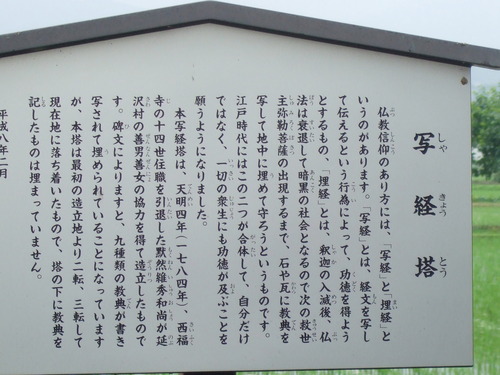 写経塔
しゃきょうとう
仏教信仰のあり方には、「写経」と「埋経」と
いうのがあります。「写経」とは、経文を写し
て伝えるという行為によって、功徳を得よう
とするもの、「埋経」とは、釈迦の入滅後、仏
法は衰退して暗黒の社会となるので次の救世
主弥勒菩薩の出現するまで、石や瓦に教典を
写して地中に埋めて守ろうというものです。
江戸時代にはこの二つが合体して、自分だけ
ではなく、一切の衆生にも功徳が及ぶことを
願うようになりました。
本写経塔は、天明四年(一七八四年)、西福
寺の十四世住職を引退した黙然維秀和尚が延
沢村の善男善女の協力を得て造立したもので
す。碑文によりますと、九種類の教典が書き
写されて埋められていることになっています
が、本塔は最初の造立地より二転、三転して
現在地に落ち着いたもので、塔の下に教典を
記したものは埋まっていません。
平成八年二月